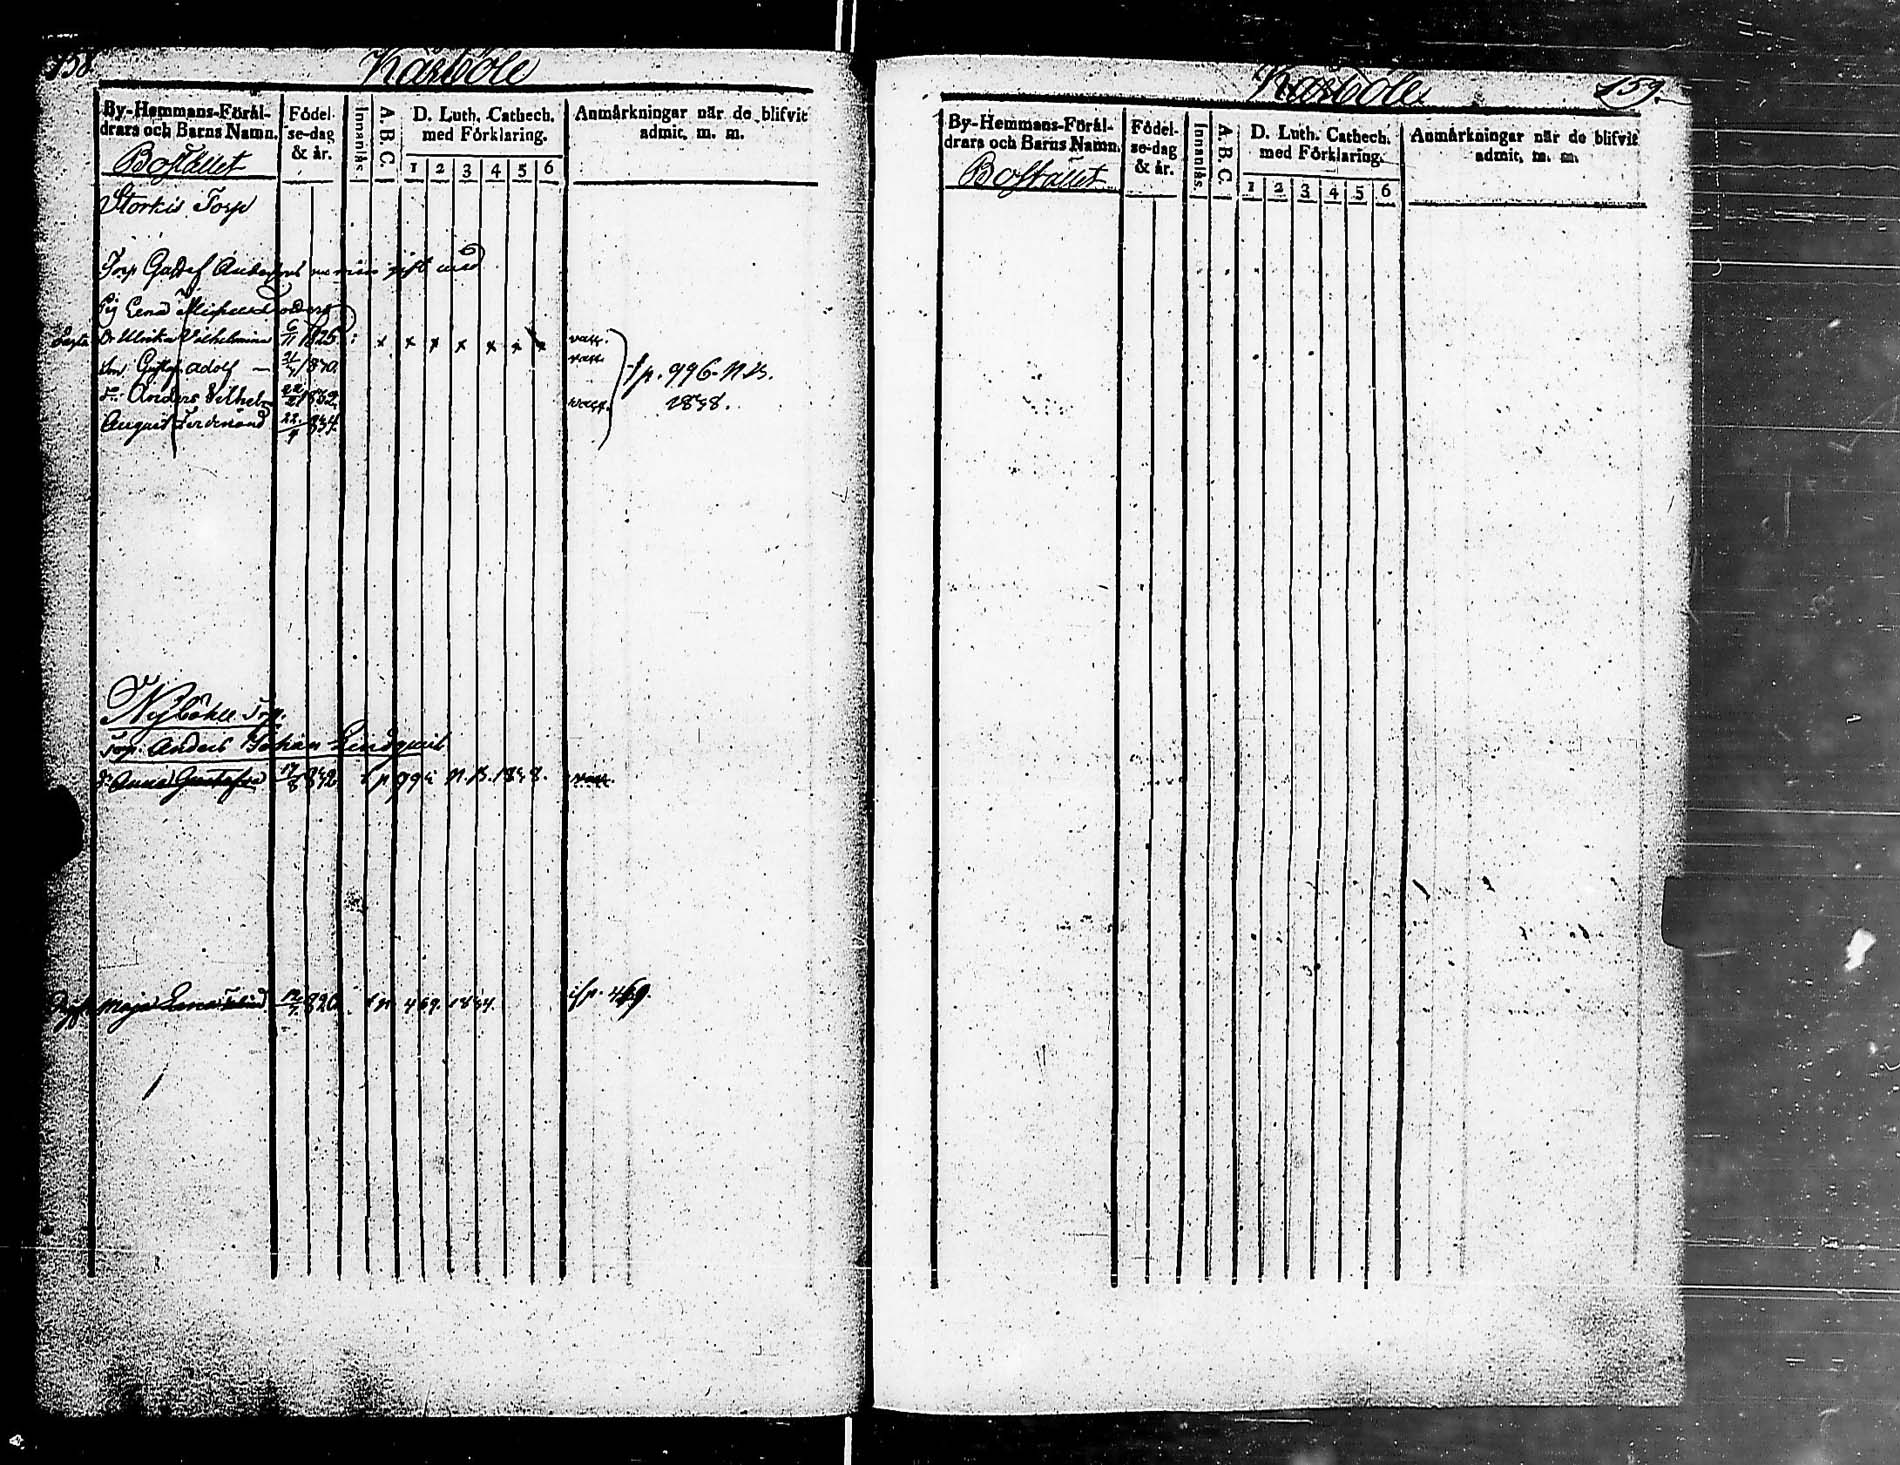 158
Karböle
By-Hemmans-Föräl-
drars och Barns Namn.
Födel-
se-dag
& år.
Innanläs.
A. B. C.
D. Luth. Cathech.
med Förklaring.
1 2 3 4 5 6
Anmärkningar när de blifvit
admit. m. m.
Bostället
Storkis Torp
Torp Gustaf gift med
Pig Lena
Dr Ulrika Vilhelmina 6/11 1825 x x x x x x x vacc.
Son Gustaf Adolf 1830 vacc.
Anders Vilhelm 1832 vacc.
August Ferdinand 22/9 834
f p. 996. N.B.
1838.
Nyböhle Torp.
Torp. Anders Johan Lindqvist
Dr Anna Gustafva 17/8 832 f p 994 N.B. 1838. vacc.
Maja Lena 820 f p. 469. 1834. if p. 469.
Karböle
159.
By-Hemmans-Föräl-
drars och Barns Namn.
Födel-
se-dag
& år.
Innanläs.
A. B. C.
D. Luth. Cathech.
med Förklaring.
1 2 3 4 5 6
Anmärkningar när de blifvit
admit. m. m.
Bostället